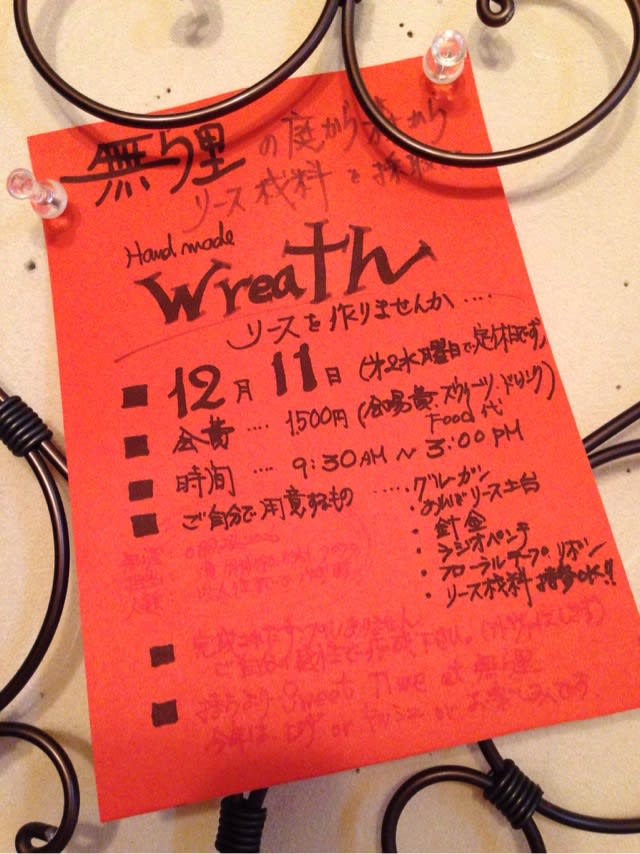 無ら里 の庭から森から
リース材料を採取
Hand made
Wreath
リースを作りませんか....
■ 12月11日 (第2水曜日で定休日です)
■ 会費 .... 1500円 (会場費・スウィーツ・ドリンク)
Food代
■ 時間 .... 9:30AM ~ 3:00PM
■ ご自分で用意するもの ..... ・グルーガン
・あればリース土台
・針金
・ラジオペンチ
・フローラルテープ リボン
・リース材料 持参OK!!
■ 完成された
ご自由に
■ 持ちより Sweet Time at 無ら里
今年は、 or キッシュ or お楽しみです